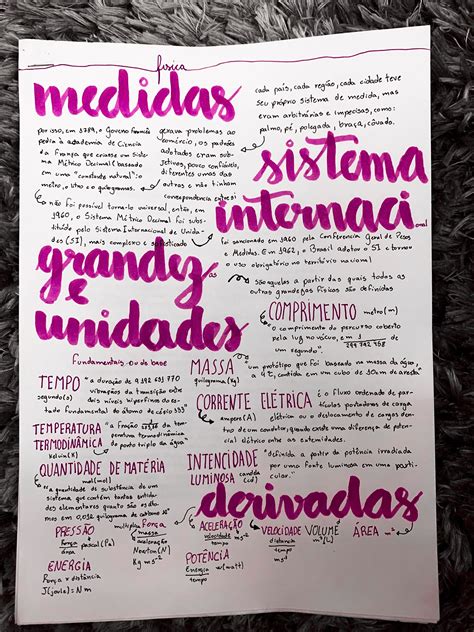 física
medidas
cada país, cada região, cada cidade teve
seu próprio sistema de medida, mas
eram arbitrárias e imprecisas, como:
palmo, pé, polegada, braça, côvado.
por isso, em 1789, o Governo Francês
pediu à academia de Ciência
da França que criasse um Sis-
tema Métrico Decimal baseado
em uma "constante natural": o
metro, litro e o quilograma.
gerava problemas ao
comércio, os padrões
adotados eram sub-
jetivos, pouco confiáveis,
diferentes umas das
outras e não tinham
correspondência entre si
sistema
internacional
não foi possível torná-lo universal, então, em
1960, o Sistema Métrico Decimal foi subs-
tituído pelo Sistema Internacional de Unida-
des (SI), mais complexo e sofisticado
foi sancionado em 1960 pela Conferência Geral de Pesos
e Medidas. Em 1962, o Brasil adotou o SI e tornou
o uso obrigatório no território nacional
grandezas
e
unidades
são aquelas a partir das quais todas as
outras grandezas físicas são definidas
COMPRIMENTO metro (m)
"o comprimento do percurso coberto
pela luz no vácuo, em 1
299 792 458
de um segundo"
Fundamentais ou de base
MASSA
quilograma (kg)
"um protótipo que foi baseado na massa da água,
a 4°C, contida em um cubo de 10cm de aresta
TEMPO
segundo (s)
"a duração de 9 192 631 770
vibrações da transição entre
dois níveis hiperfinos do es-
tado fundamental do átomo de césio 133"
CORRENTE ELÉTRICA
ampere (A)
é o fluxo ordenado de par-
tículas portadoras de carga
elétrica ou o deslocamento de cargas den-
tro de um condutor, quando existe uma diferença de poten-
cial elétrico entre as extremidades.
TEMPERATURA
TERMODINÂMICA
Kelvin (K)
"a fração da tem-
peratura termodinâmica
do ponto triplo da água"
QUANTIDADE DE MATÉRIA
mol (mol)
"a quantidade de substância de um
sistema, que contém tantas entida-
des elementares quanto são os áto-
mos em 0,012 quilograma de carbono 12"
INTENCIDADE
LUMINOSA candela
(cd)
"definida a partir da potência irradiada
por uma fonte luminosa em uma parti-
cular."
derivadas
PRESSÃO
Força pascal (Pa)
área
Força
multiplica massa
aceleração
Newton (N)
Kg ms⁻²
ACELERAÇÃO
velocidade ms⁻²
tempo
VELOCIDADE
distância
tempo
ms⁻¹
VOLUME
m³ (L)
ÁREA m²
ENERGIA
Força x distância
J (joule) = N m
POTÊNCIA
Energia w (watt)
tempo